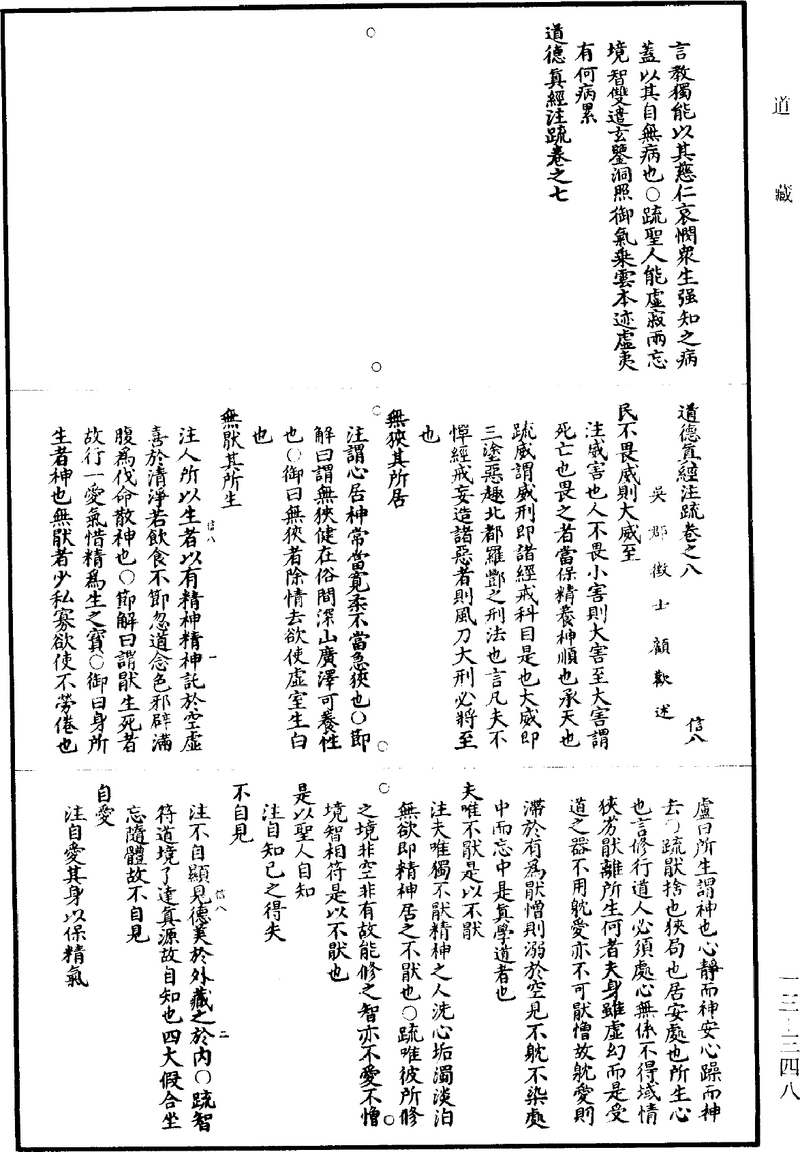 道藏
言教獨能以其慈仁哀憫眾生强知之病
蓋以其自無病也○疏聖人能虛寂兩忘
境智雙遣玄鑒洞照御氣乘雲本迹虛夷
有何病累
道德真經注疏卷之七
道德真經注疏卷之八
信八
吳郡徵士顧歡述
民不畏威則大威至
注威害也人不畏小害則大害至大害謂
死亡也畏之者當保精養神順也承天也
疏威謂威刑即諸經戒科目是也大威即
三塗惡趣北都羅酆之刑法也言凡夫不
憚經戒妄造諸惡者則風刀大刑必將至
也
無狹其所居
注謂心居神常當寬柔不當急狹也○節
解曰謂無狹健在俗間深山廣澤可養性
也○御曰無狹者除情去欲使虛室生白
也
無猒其所生
注人所以生者以有精神精神託於空虛
喜於清淨若飲食不節忽道念色邪辟滿
腹為伐命散神也○節解曰謂猒生死者
故行一愛氣惜精為生之寶○御曰身所
生者神也無猒者少私寡欲使不勞倦也
信八
一
盧曰所生謂神也心靜而神安心躁而神
去○疏猒捨也狹局也居安處也所生心
也言修行道人必須處心無係不得域情
狹劣猒離所生何者夫身雖虛幻而是受
道之器不用躭愛亦不可猒憎故躭愛則
滯於有為猒憎則溺於空見不躭不染處
中而忘中是真學道者也
夫唯不猒是以不猒
注夫唯獨不猒精神之人洗心垢濁淡泊
無欲即精神居之不猒也○疏唯彼所修
之境非空非有故能修之智亦不愛不憎
境智相符是以不猒也
是以聖人自知
注自知已之得失
不自見
注不自顯見德美於外藏之於內○疏智
符道境了達真源故自知也四大假合坐
忘隨體故不自見
自愛
注自愛其身以保精氣
信八
二
一三—三四八